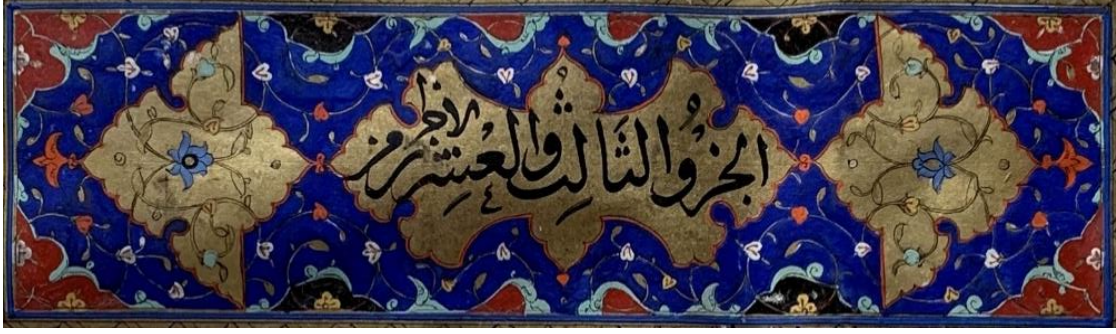 الجزؤ الثالث والعشرون من